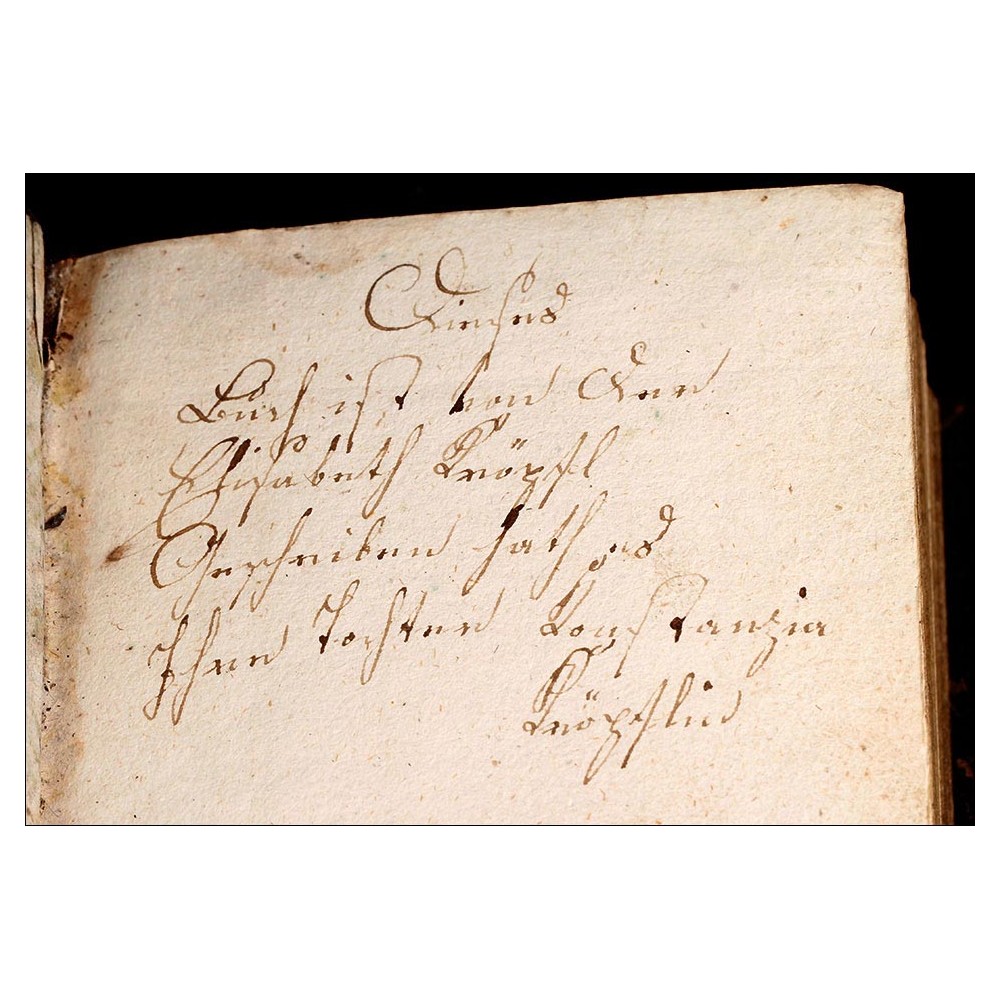 Dieses
Buch ist von der
Elisabeth Kröpfl
Geschriben hath es
Ihre Tochter Konstanzia
Kröpflin